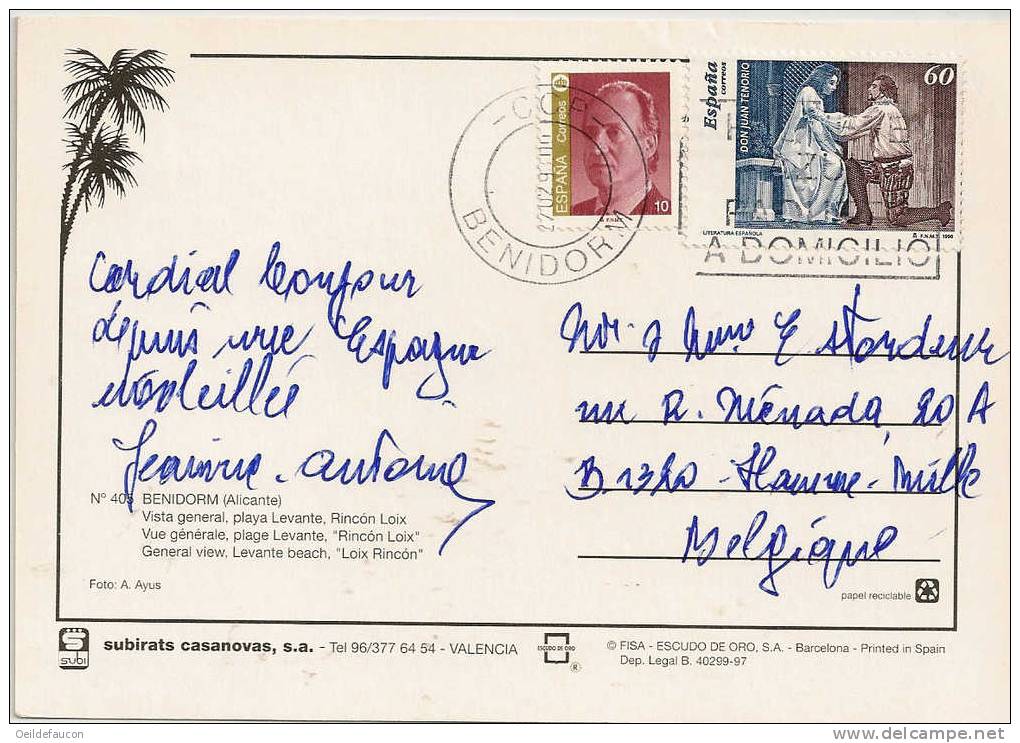 CCP
BENIDORM
ESPAÑA Correos
10
F.N.M.T.
España
correos
DON JUAN TENORIO
60
LITERATURA ESPAÑOLA
F.N.M.T. 1998
A DOMICILIO
Cordial bonjour
depuis une Espagne
ensoleillée
Jeannine - Antoine
Mr & Mme E
rue R. Ménada, 20 A
B 1320 - Hamme - Mille
Belgique
Nº 405 BENIDORM (Alicante)
Vista general, playa Levante, Rincón Loix
Vue générale, plage Levante, "Rincón Loix"
General view, Levante beach, "Loix Rincón"
Foto: A. Ayus
papel reciclable
SUBI
subirats casanovas, s.a. - Tel 96/377 64 54 - VALENCIA
ESCUDO DE ORO
®
© FISA - ESCUDO DE ORO, S.A. - Barcelona - Printed in Spain
Dep. Legal B. 40299-97
Oeildefaucon
www.delcampe.net